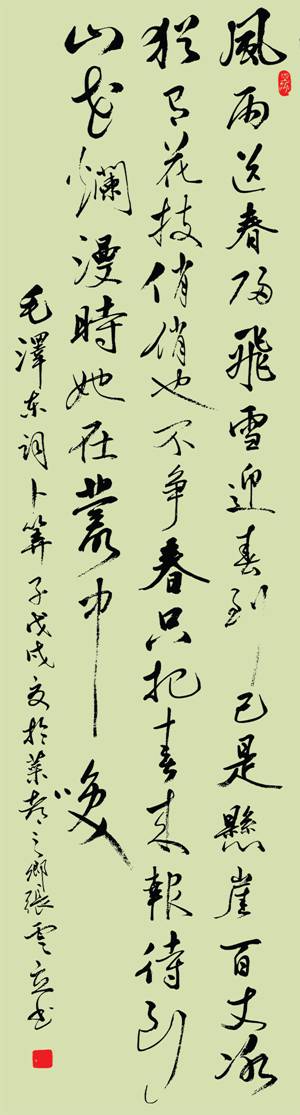 風雨送春歸飛雪迎春到已是懸崖百丈冰
猶有花枝俏俏也不争春只把春來報待到
山花爛漫時她在叢中咲
毛澤东詞卜筭子戊戌夏於菜都之鄉張雲立书